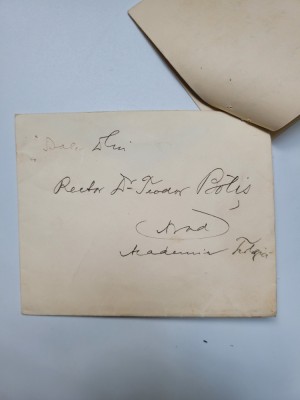 Dsale Dlui
Rector Dr Teodor Botiș
Arad
Academia Teologică